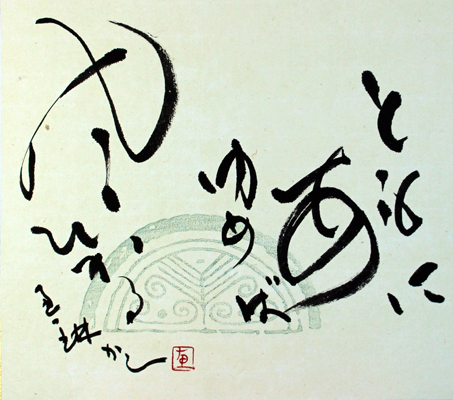 ともに
あ
ゆめば
風ひかる